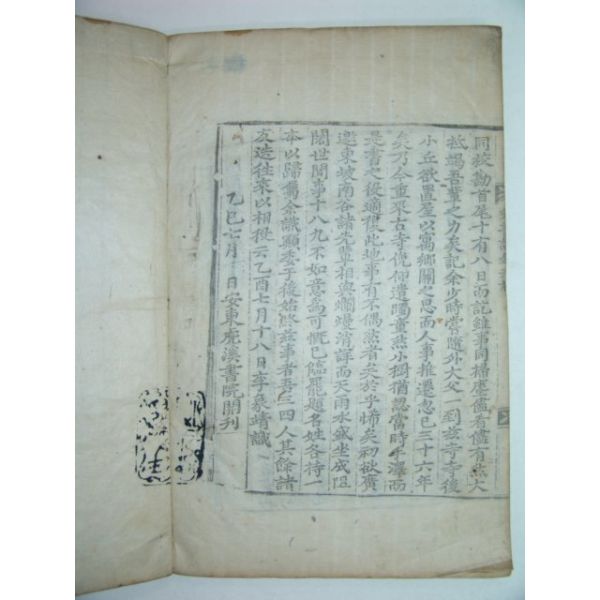 同校勘首尾十有八日而訖雖事同掃塵儘看儘有然大
抵竭吾輩之力矣記余少時嘗隨外大父一到玆寺寺後
小丘欲置屋以寓鄉關之思而人事推遷忽已三十六年
矣乃今重來古寺俛仰遺躅童然小樹猶認當時手澤而
是書之役適復此地事有不偶然者矣於乎悕矣初欲廣
邀東坡南谷諸先輩相與爛熳消詳而天雨水鉞坐成阻
闊世間事十八九不如意爲可慨已臨罷題名姓各持一
本以歸屬余識顚委于後始終玆事者吾三四人其餘諸
友造往來以相役云乙酉七月十八日李象靖識
乙巳七月 日安東虎溪書院開刊